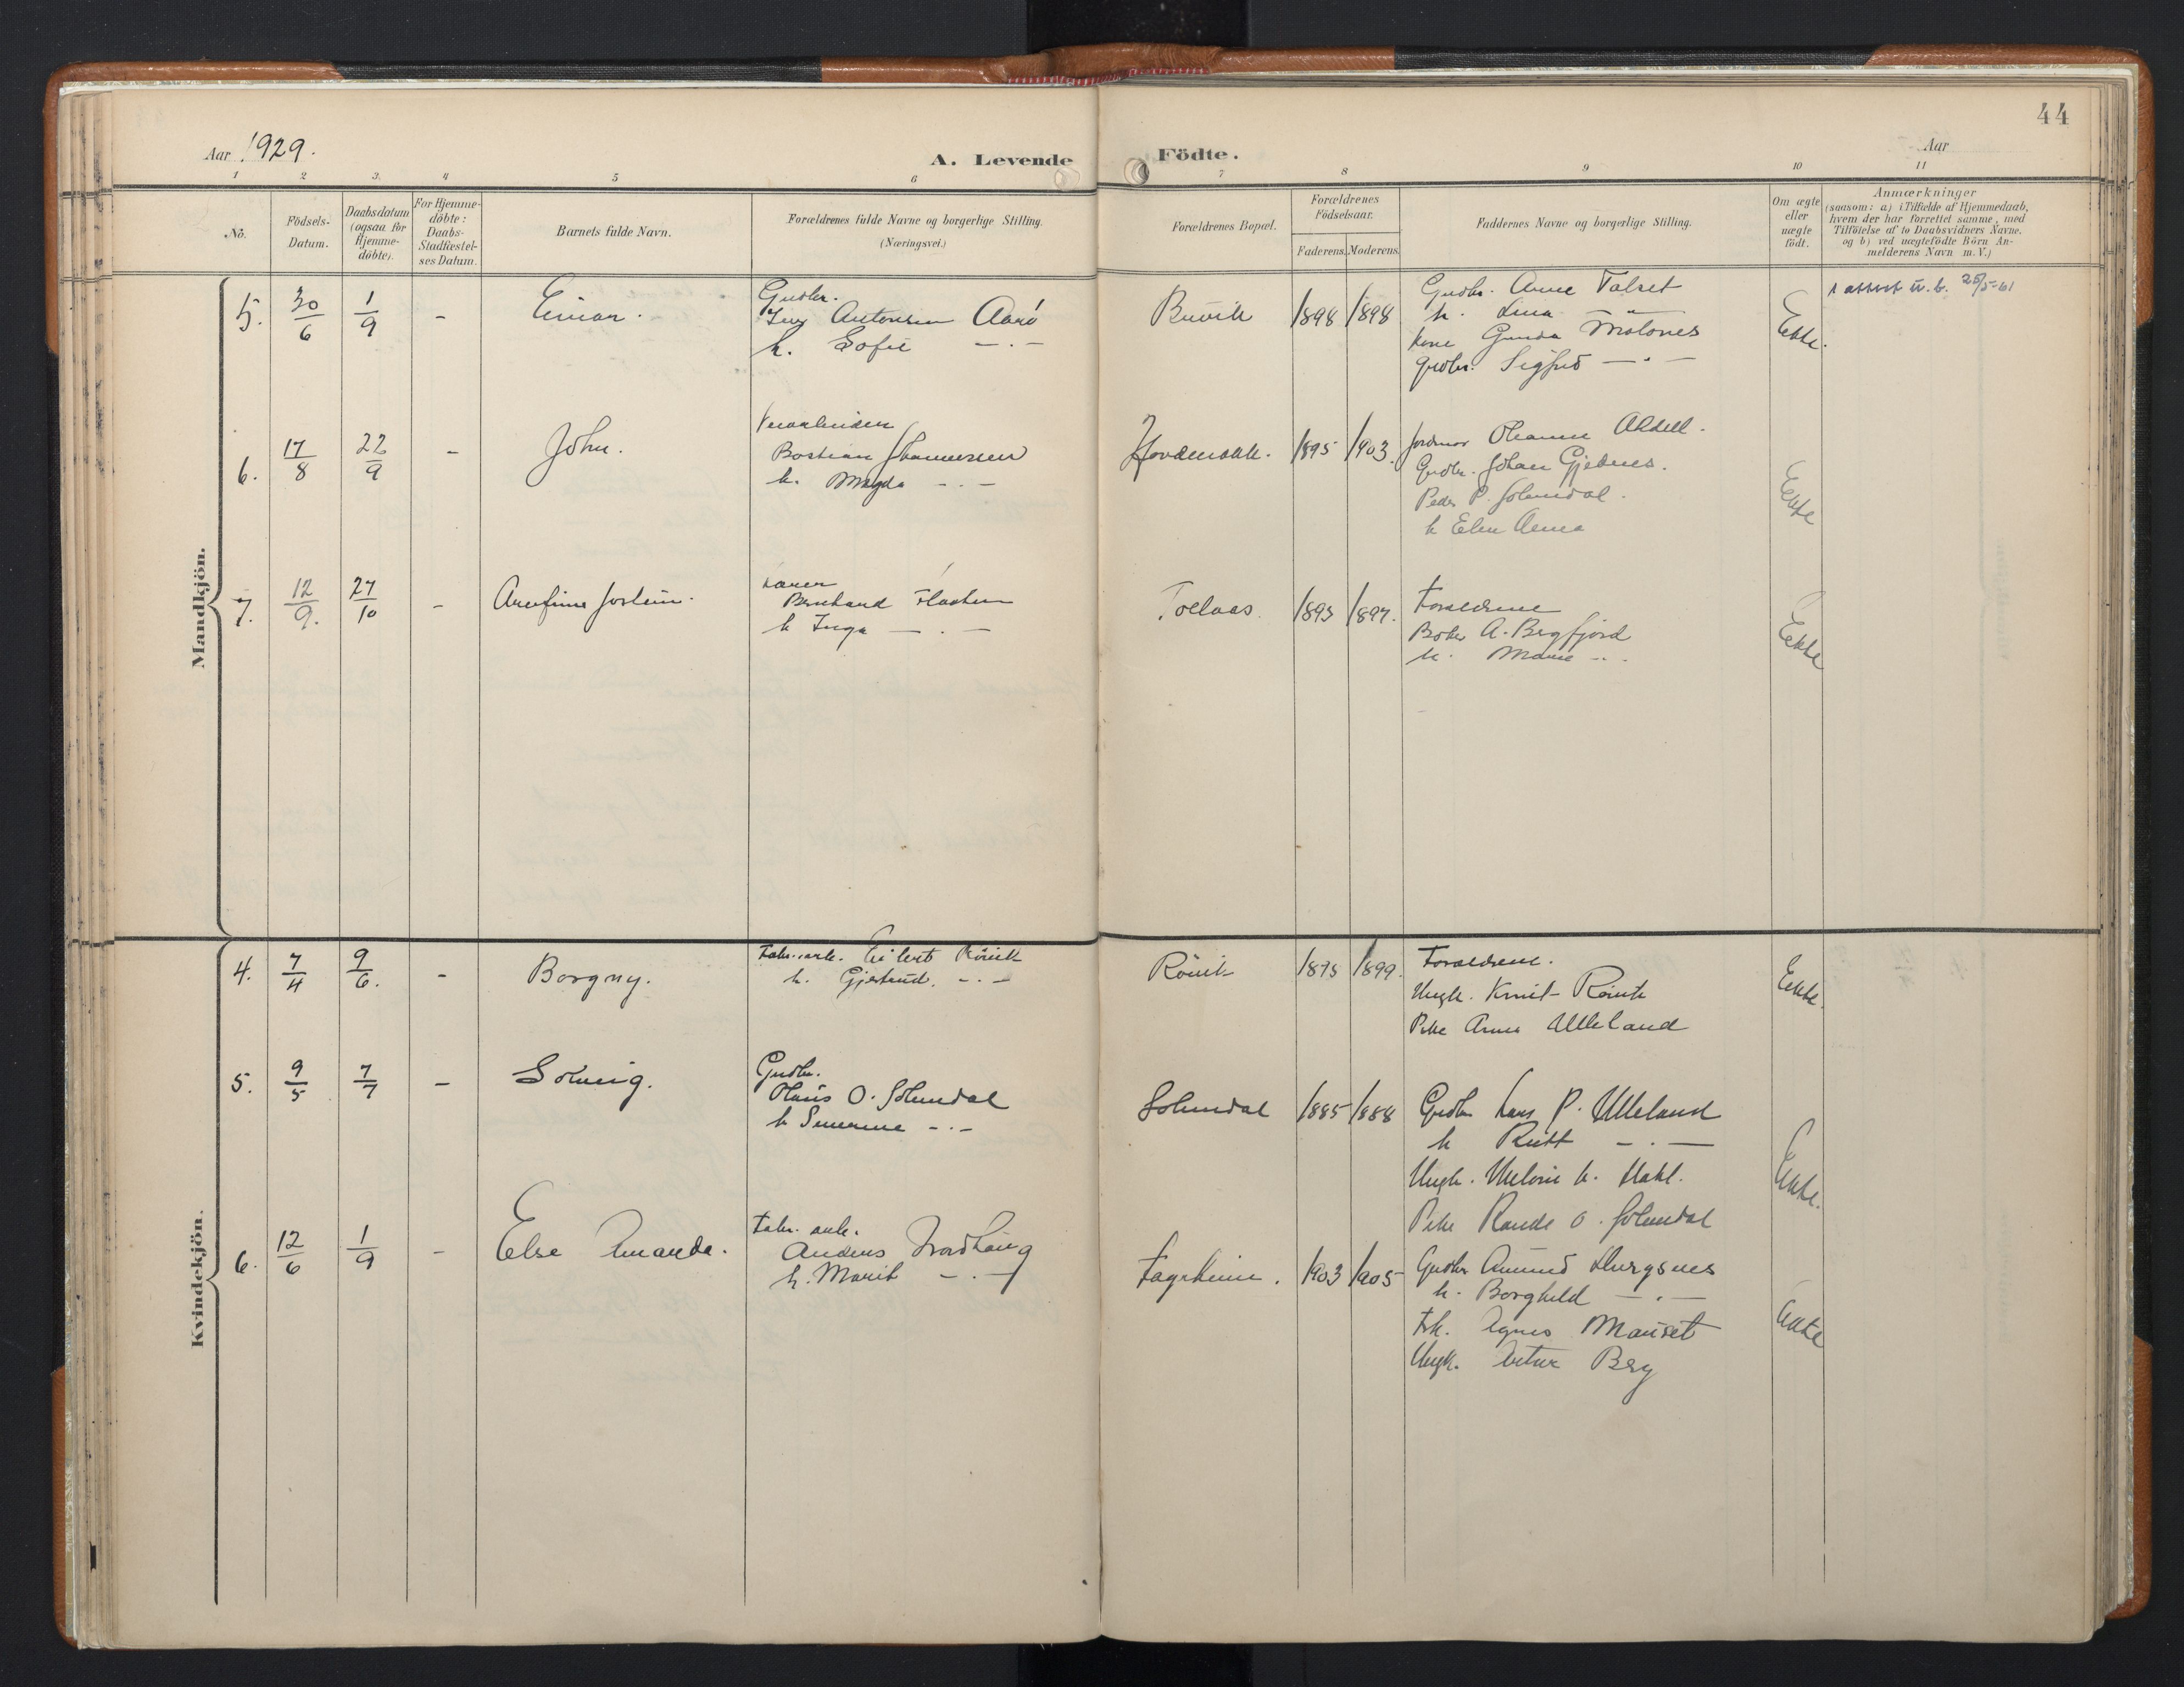 44
Aar 1929.
A. Levende Födte.
Aar
1 2 3. 4 5 6 7 8 9 10 11
No. Födsels-Datum. Daabsdatum (ogsaa for Hjemme-döbte). For Hjemme-döbte: Daabs-Stadfæstel-ses Datum. Barnets fulde Navn. Forældrenes fulde Navne og borgerlige Stilling. (Næringsvei.) Forældrenes Bopæl. Forældrenes Födselsaar. Faderens. Moderens. Faddernes Navne og borgerlige Stilling. Om ægte eller uægte födt. Anmærkninger (saasom: a) i Tilfælde af Hjemmedaab, hvem der har forrettet samme, med Tilföielse af to Daabsvidners Navne, og b) ved uægtefödte Börn An-melderens Navn m. V.)
Mandkjön.
5. 30/6 1/9 - Einar. Gudbr. Buvik 1898 1898 Gudbr. Anne Talset Ekte. 25/5-61
Antonsen Aarö h. Lina - " -
h. Sofie - . - Kone Gunda Mölones
Gudbr. Sigfred - . -
6. 17/8 22/9 - John. 1895 1903. Jordmor Ekte
Bastian Johannessen Gudbr. Johan Gjednes.
h. Magda - . - Peder P. Solemdal.
h Elen Anna
7. 12/9. 27/10 - Arnfinn Jostein. Lærer Tollaas. 1893 1897. Foreldrene Ekte
Bernhard Flaaten A. Bergfjord
h Inga - . - h. Marie - . -
Kvindekjön.
4. 7/4 9/6. - Borgny. Fabr. arb. Eilert Rövik Rövik 1875 1899. Foreldrene. Ekte.
h. Gjertrud. - . - Ungk. Knut Rövik
Pike Anna Ulleland
5. 9/5 7/7 - Solveig. Gudbr. Solemdal 1885 1888 Gudbr Lars P. Ulleland Ekte.
Olaus O. Solemdal h Rutt - . -
h Severine - . - Ungk.
Pike O. Solemdal
6. 12/6 1/9 - Else Amanda. Fabr. arb. Fagerheim. 1903 1905 Gudbr Amund Ekte
Anders Nordhaug h. Borghild - . -
h. Marit - . - Frk. Agnes Mauset
Ungk. Artur Berg